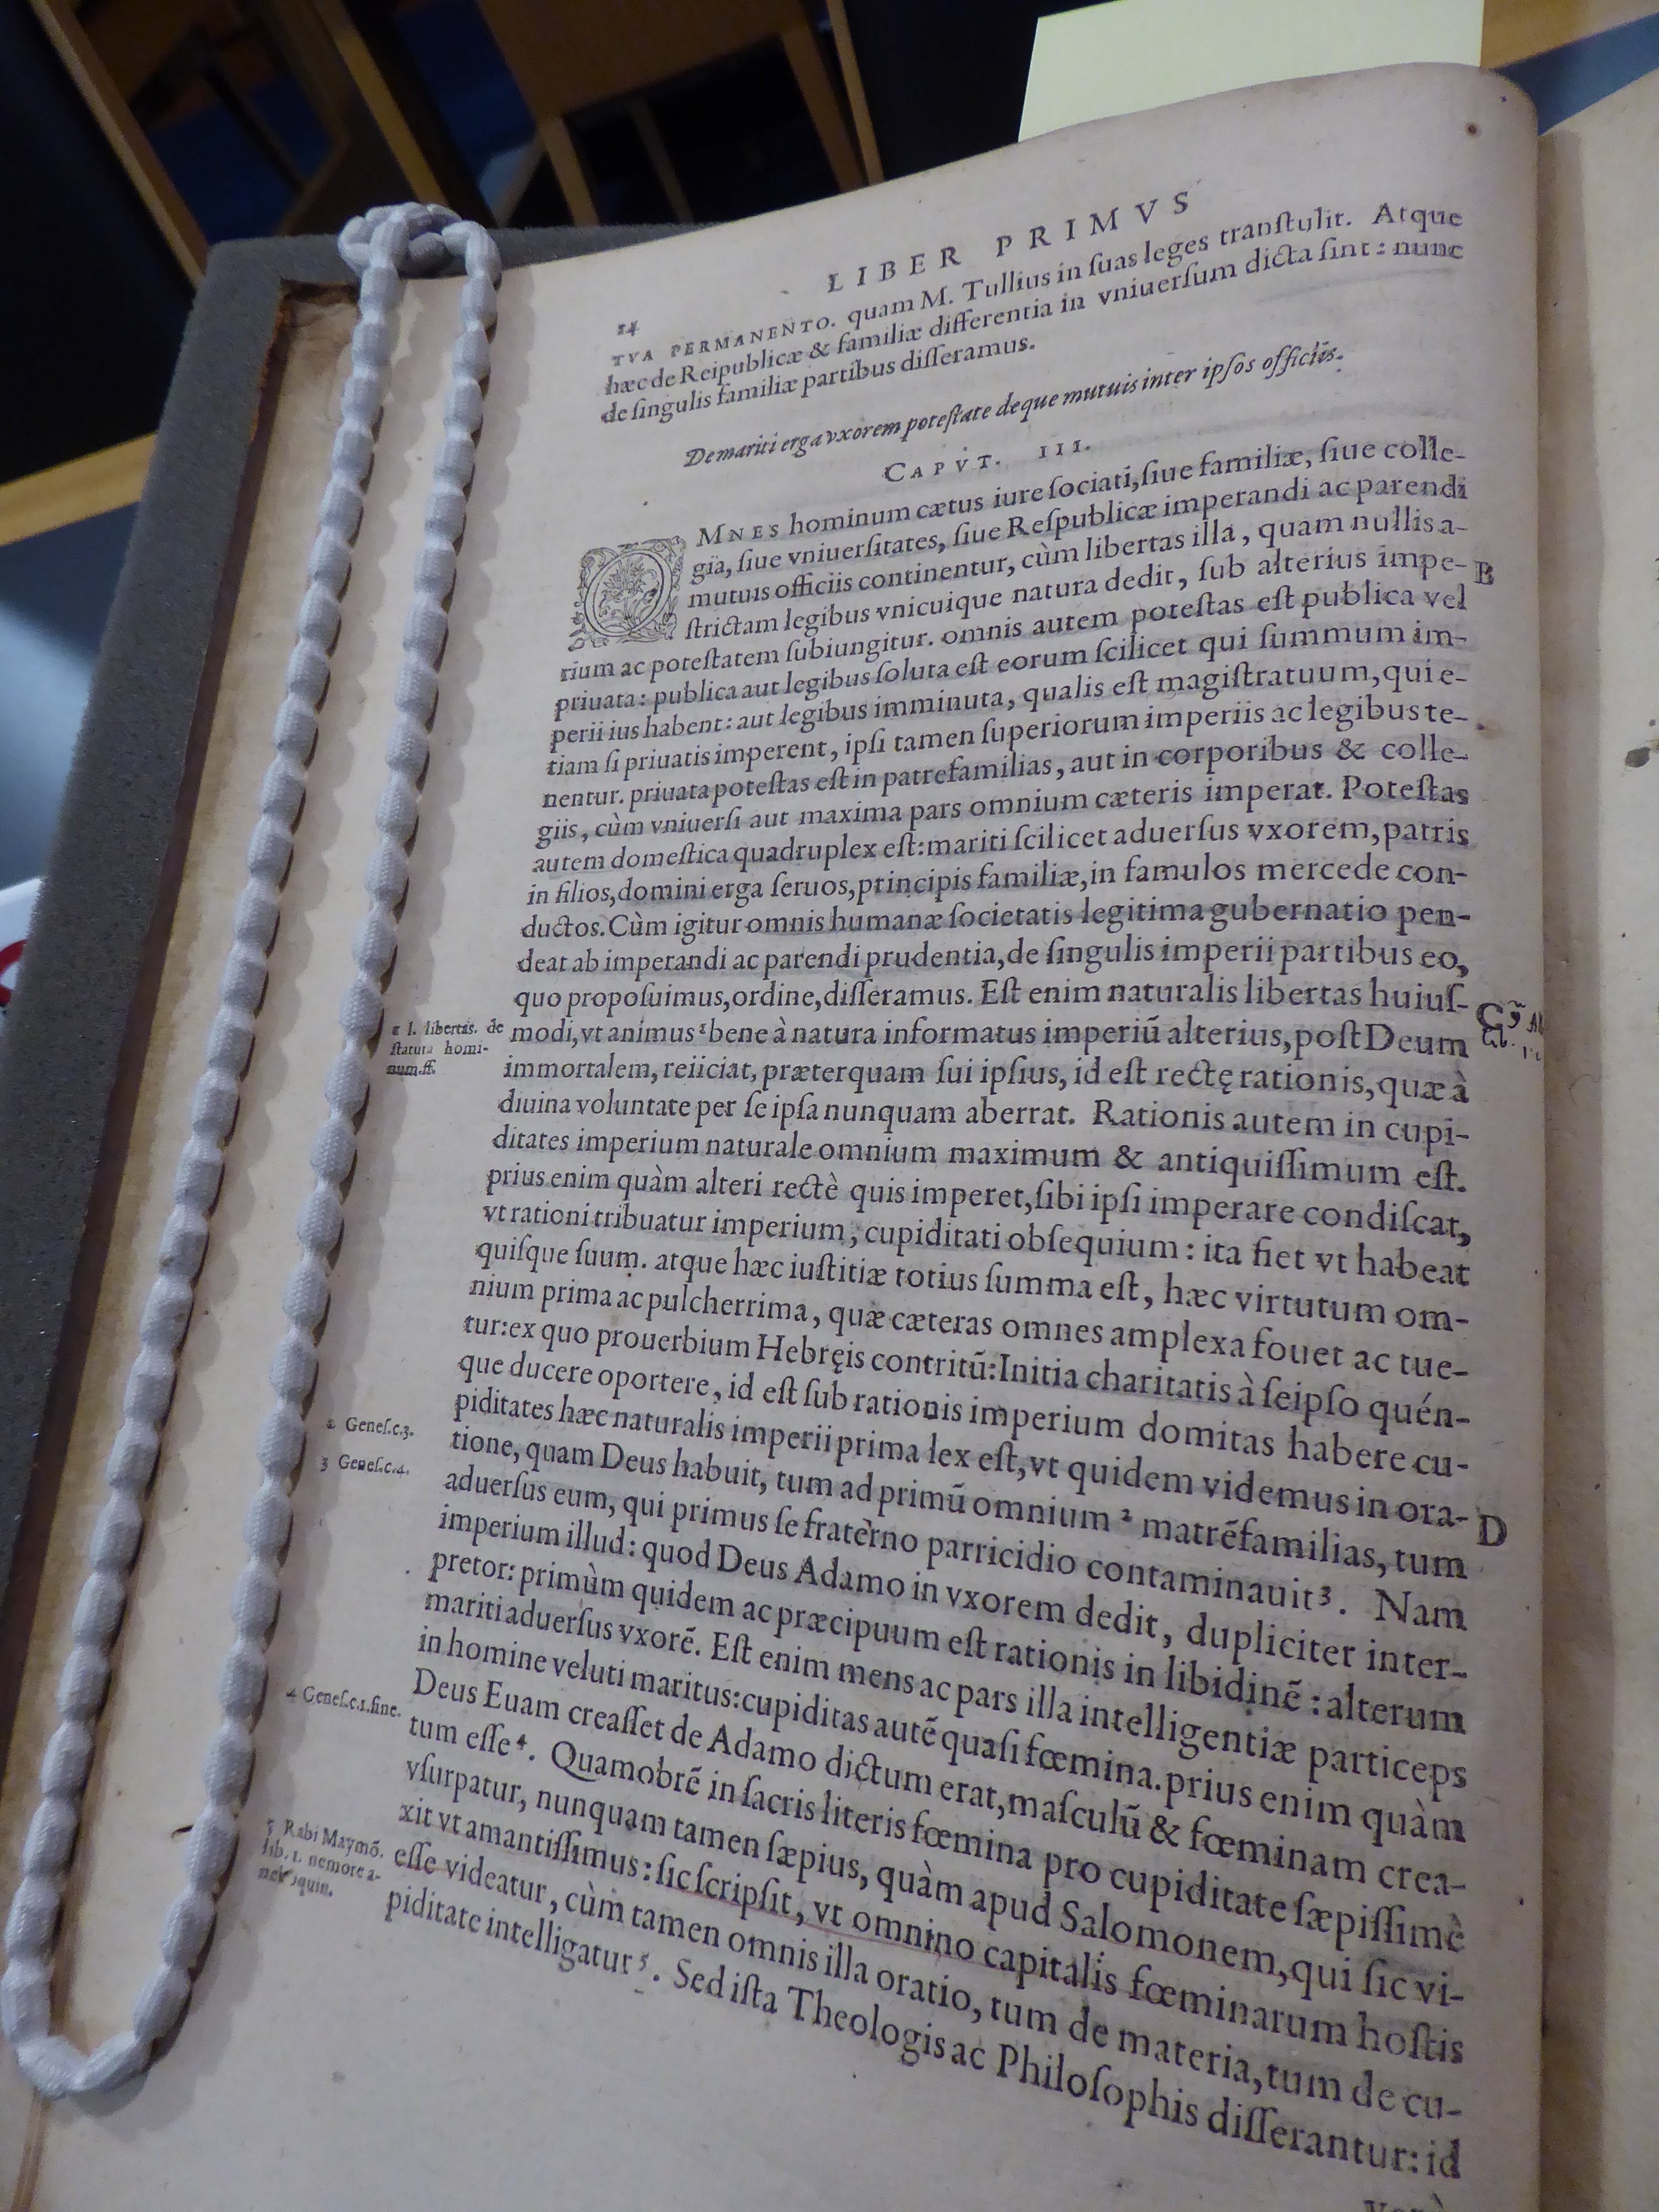 14
LIBER PRIMVS
TVA PERMANENTO. quam M. Tullius in ſuas leges tranſtulit. Atque
hæc de Reipublicæ & familiæ differentia in vniuerſum dicta ſint: nunc
de ſingulis familiæ partibus diſſeramus.
De mariti erga vxorem poteſtate deque mutuis inter ipſos officiis.
CAPVT. III.
OMNES hominum cætus iure ſociati, ſiue familiæ, ſiue colle-
gia, ſiue vniuerſitates, ſiue Reſpublicæ imperandi ac parendi
mutuis officiis continentur, cùm libertas illa, quam nullis a-
ſtrictam legibus vnicuique natura dedit, ſub alterius impe-
B
rium ac poteſtatem ſubiungitur. omnis autem poteſtas eſt publica vel
priuata: publica aut legibus ſoluta eſt eorum ſcilicet qui ſummum im-
perii ius habent: aut legibus imminuta, qualis eſt magiſtratuum, qui e-
tiam ſi priuatis imperent, ipſi tamen ſuperiorum imperiis ac legibus te-
nentur. priuata poteſtas eſt in patrefamilias, aut in corporibus & colle-
giis, cùm vniuerſi aut maxima pars omnium cæteris imperat. Poteſtas
autem domeſtica quadruplex eſt: mariti ſcilicet aduerſus vxorem, patris
in filios, domini erga ſeruos, principis familiæ, in famulos mercede con-
ductos. Cùm igitur omnis humanæ ſocietatis legitima gubernatio pen-
deat ab imperandi ac parendi prudentia, de ſingulis imperii partibus eo,
quo propoſuimus, ordine, diſſeramus. Eſt enim naturalis libertas huiuſ-
C
1 l. libertas. de
ſtatuta homi-
num. ff.
modi, vt animus ¹ bene à natura informatus imperiũ alterius, poſt Deum
immortalem, reiiciat, præterquam ſui ipſius, id eſt rectę rationis, quæ à
diuina voluntate per ſe ipſa nunquam aberrat. Rationis autem in cupi-
ditates imperium naturale omnium maximum & antiquiſſimum eſt.
prius enim quàm alteri rectè quis imperet, ſibi ipſi imperare condiſcat,
vt rationi tribuatur imperium, cupiditati obſequium: ita fiet vt habeat
quiſque ſuum. atque hæc iuſtitiæ totius ſumma eſt, hæc virtutum om-
nium prima ac pulcherrima, quæ cæteras omnes amplexa fouet ac tue-
tur: ex quo prouerbium Hebręis contritũ: Initia charitatis à ſeipſo quén-
que ducere oportere, id eſt ſub rationis imperium domitas habere cu-
piditates hæc naturalis imperii prima lex eſt, vt quidem videmus in ora-
D
2 Geneſ.c.3.
3 Geneſ.c.4.
tione, quam Deus habuit, tum ad primũ omnium ² matrẽfamilias, tum
aduerſus eum, qui primus ſe fraterno parricidio contaminauit ³. Nam
imperium illud: quod Deus Adamo in vxorem dedit, dupliciter inter-
pretor: primùm quidem ac præcipuum eſt rationis in libidinẽ: alterum
mariti aduerſus vxorẽ. Eſt enim mens ac pars illa intelligentiæ particeps
in homine veluti maritus: cupiditas autẽ quaſi fœmina. prius enim quàm
Deus Euam creaſſet de Adamo dictum erat, maſculũ & fœminam crea-
4 Geneſ.c.1.fine.
tum eſſe ⁴. Quamobrẽ in ſacris literis fœmina pro cupiditate ſæpiſſimè
vſurpatur, nunquam tamen ſæpius, quàm apud Salomonem, qui ſic vi-
xit vt amantiſſimus: ſic ſcripſit, vt omnino capitalis fœminarum hoſtis
5 Rabi Maymõ.
lib. 1. nemore a-
eſſe videatur, cùm tamen omnis illa oratio, tum de materia, tum de cu-
piditate intelligatur ⁵. Sed iſta Theologis ac Philoſophis diſſerantur: id